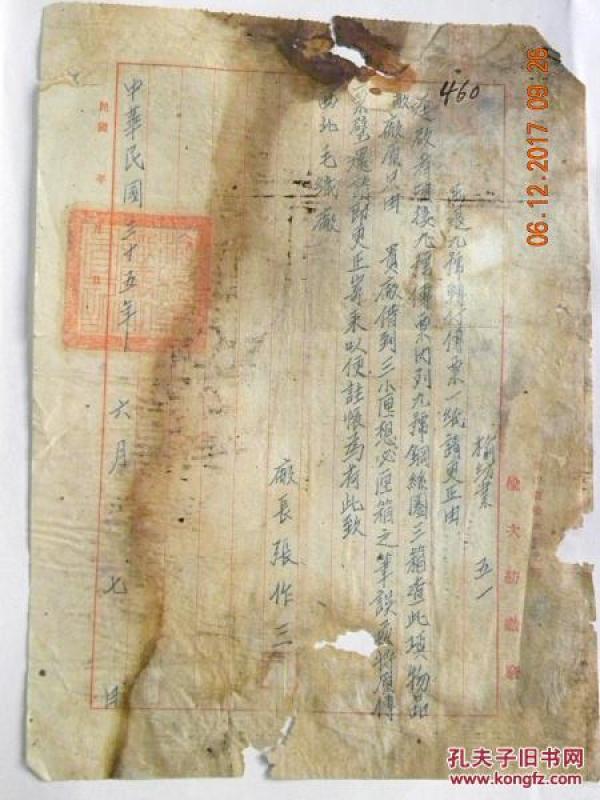 460
榆次紡織廠
榆紡業 五一
為退九號轉付傳票一紙請更正由
逕啟者頃接九號傳票內列九號鋼絲圈三箱查此項物品
敝廠原只由 貴廠借到三小匣想必匣箱之筆誤茲將原傳
票璧還請即更正寄來以便註帳為荷此致
西北毛織廠
廠長張作三
中華民國三十五年六月 七日
民國 年
06.12.2017 09:26
孔夫子旧书网
www.kongfz.com